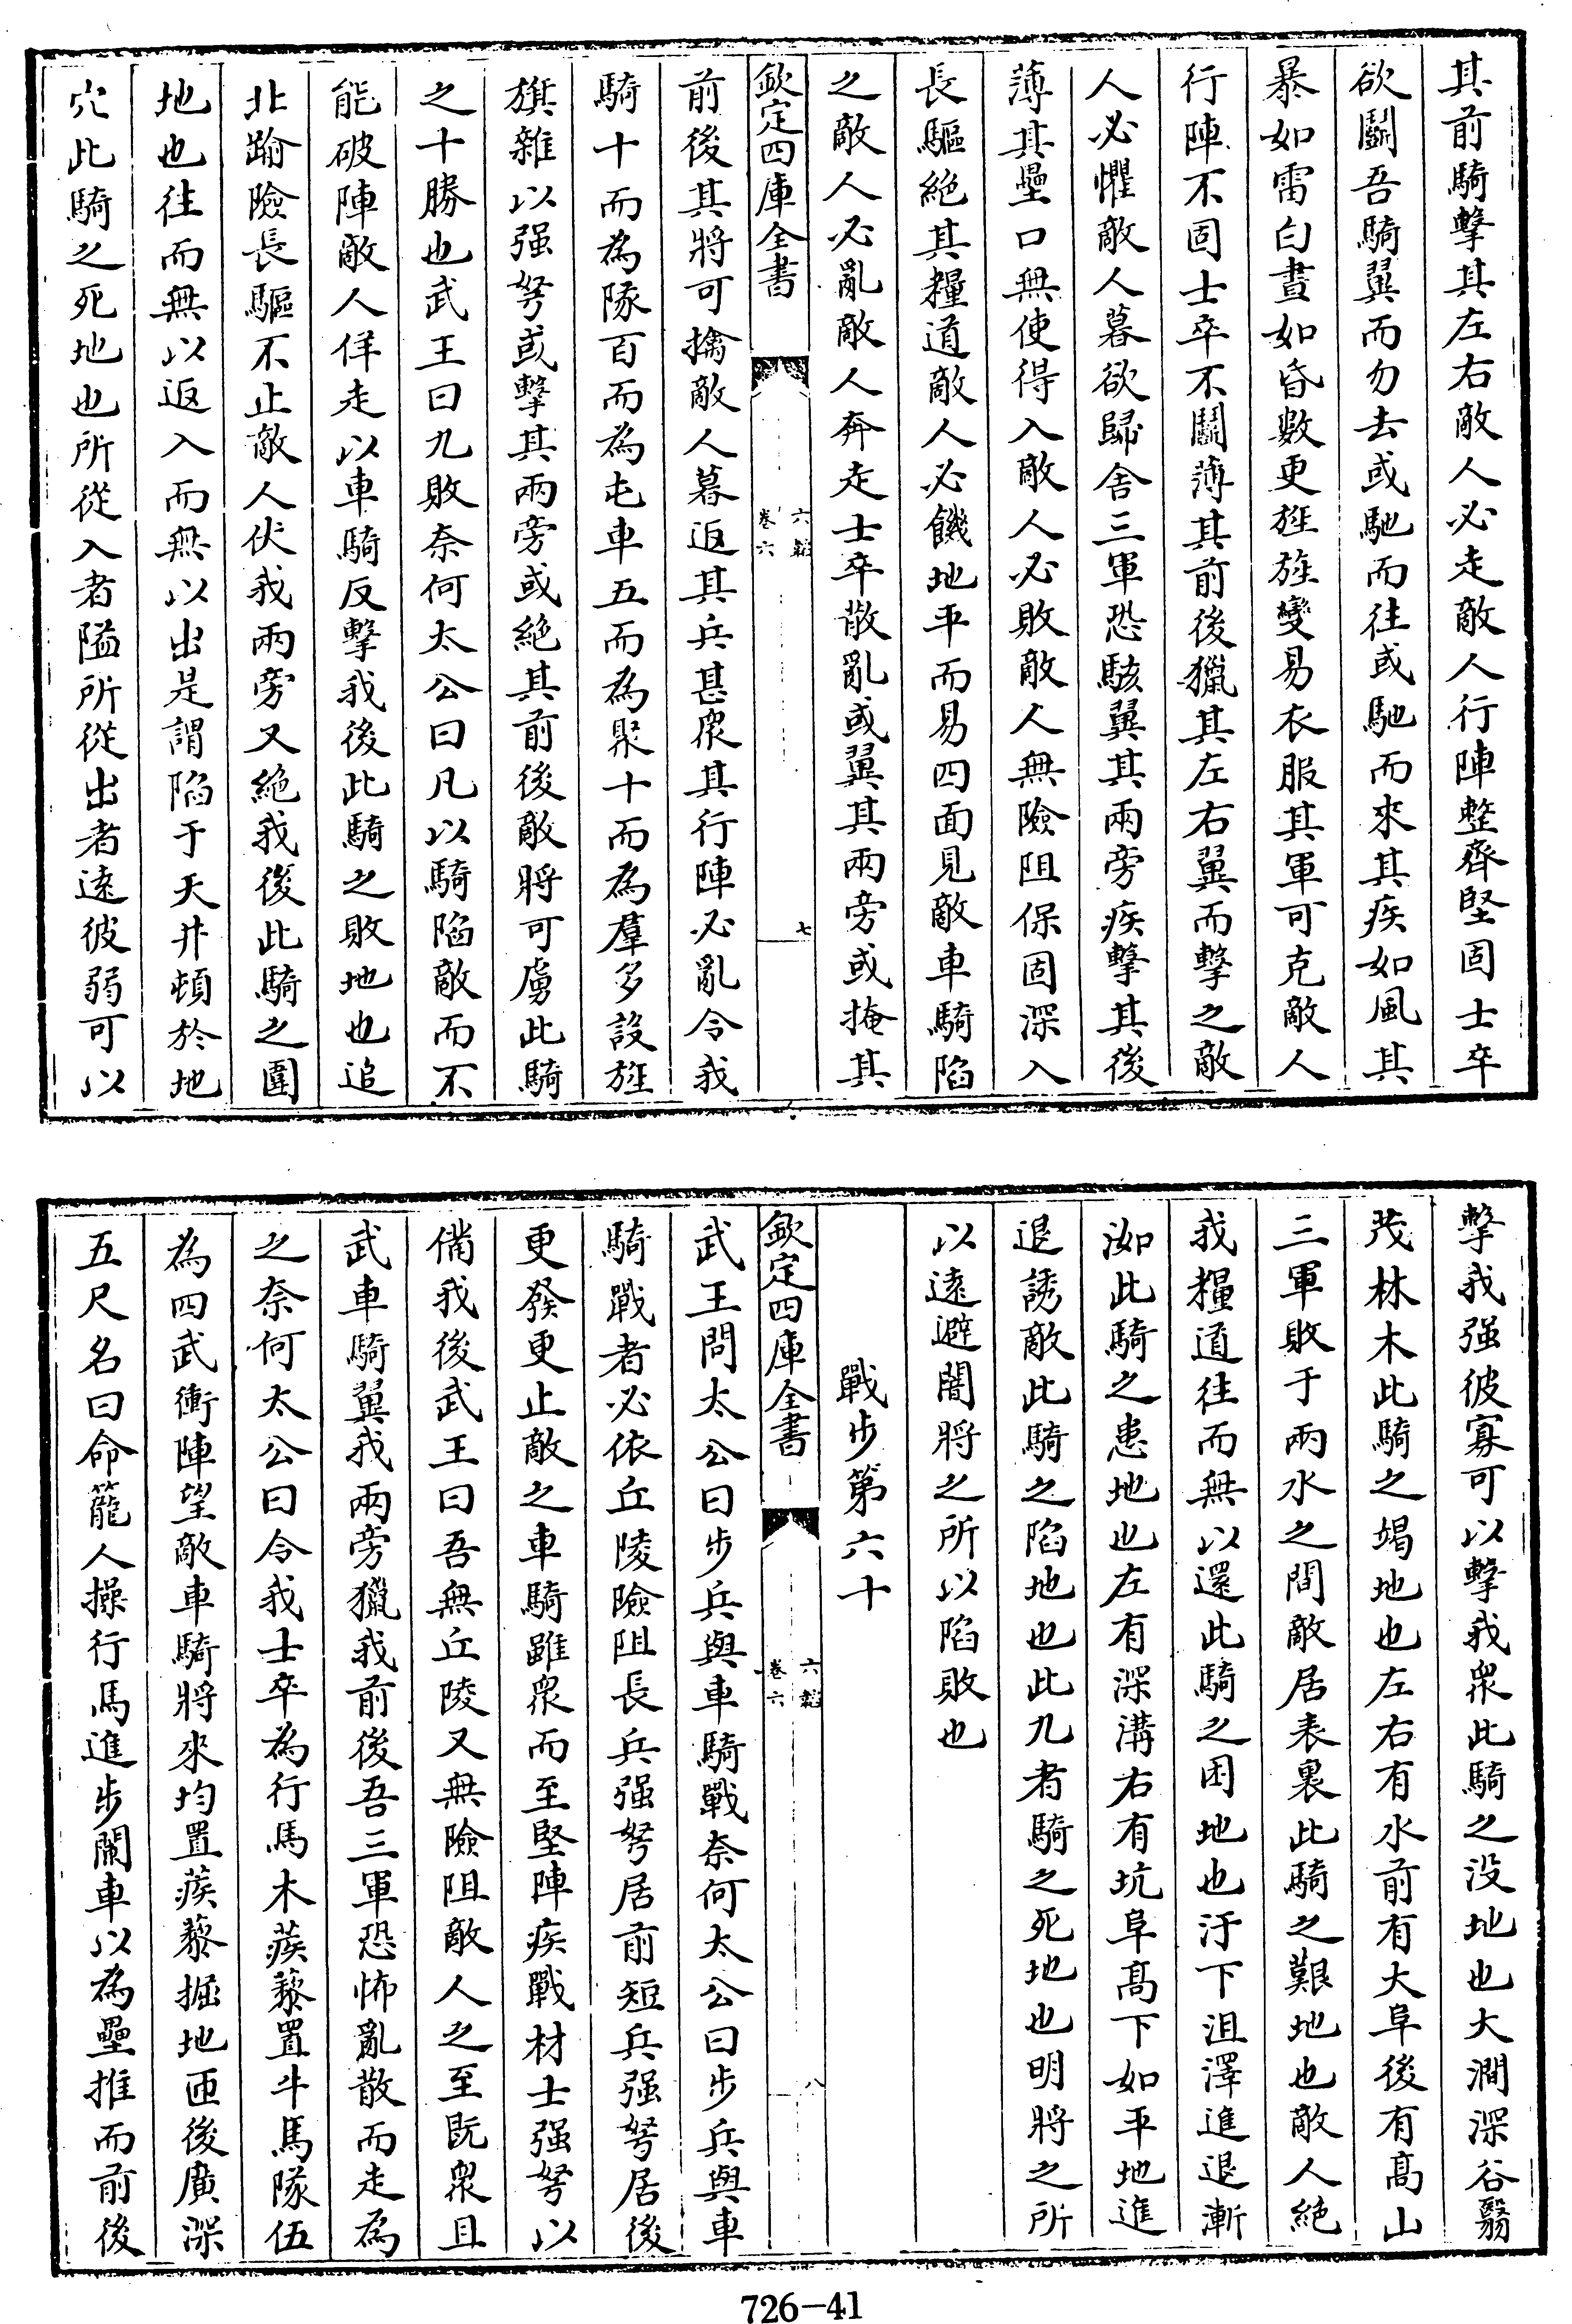 其前騎擊其左右敵人必走敵人行陣整齊堅固士卒
欲鬭吾騎翼而勿去或馳而往或馳而來其疾如風其
暴如雷白晝如昏數更旌旌變易衣服其軍可克敵人
行陣不固士卒不鬭薄其前後獵其左右翼而擊之敵
人必懼敵人暮欲歸舍三軍恐駭翼其兩旁疾擊其後
薄其壘口無使得入敵人必敗敵人無險阻保固深入
長驅絶其糧道敵人必饑地平而易四面見敵車騎陷
之敵人必亂敵人奔走士卒散亂或翼其兩旁或掩其
欽定四庫全書
六韜
卷六
七
前後其將可擒敵人暮返其兵甚衆其行陣必亂令我
騎十而為隊百而為屯車五而為聚十而為羣多設旌
旗雜以强弩或擊其兩旁或絶其前後敵將可虜此騎
之十勝也武王曰九敗奈何太公曰凡以騎陷敵而不
能破陣敵人佯走以車騎反擊我後此騎之敗地也追
北踰險長驅不止敵人伏我兩旁又絶我後此騎之圍
地也往而無以返入而無以出是謂陷于天井頓於地
穴此騎之死地也所從入者隘所從出者遠彼弱可以
擊我强彼寡可以擊我衆此騎之没地也大澗深谷翳
茂林木此騎之竭地也左右有水前有大阜後有高山
三軍敗于兩水之間敵居表裏此騎之艱地也敵人絶
我糧道往而無以還此騎之困地也汙下沮澤進退漸
洳此騎之患地也左有深溝右有坑阜高下如平地進
退誘敵此騎之陷地也此九者騎之死地也明將之所
以遠避闇將之所以陷敗也
戰步第六十
欽定四庫全書
六韜
卷六
八
武王問太公曰步兵與車騎戰奈何太公曰步兵與車
騎戰者必依丘陵險阻長兵强弩居前短兵强弩居後
更發更止敵之車騎雖衆而至堅陣疾戰材士强弩以
備我後武王曰吾無丘陵又無險阻敵人之至既衆且
武車騎翼我兩旁獵我前後吾三軍恐怖亂散而走為
之奈何太公曰令我士卒為行馬木蒺藜置牛馬隊伍
為四武衝陣望敵車騎將來均置蒺藜掘地匝後廣深
五尺名曰命籠人操行馬進步闌車以為壘推而前後
726-41